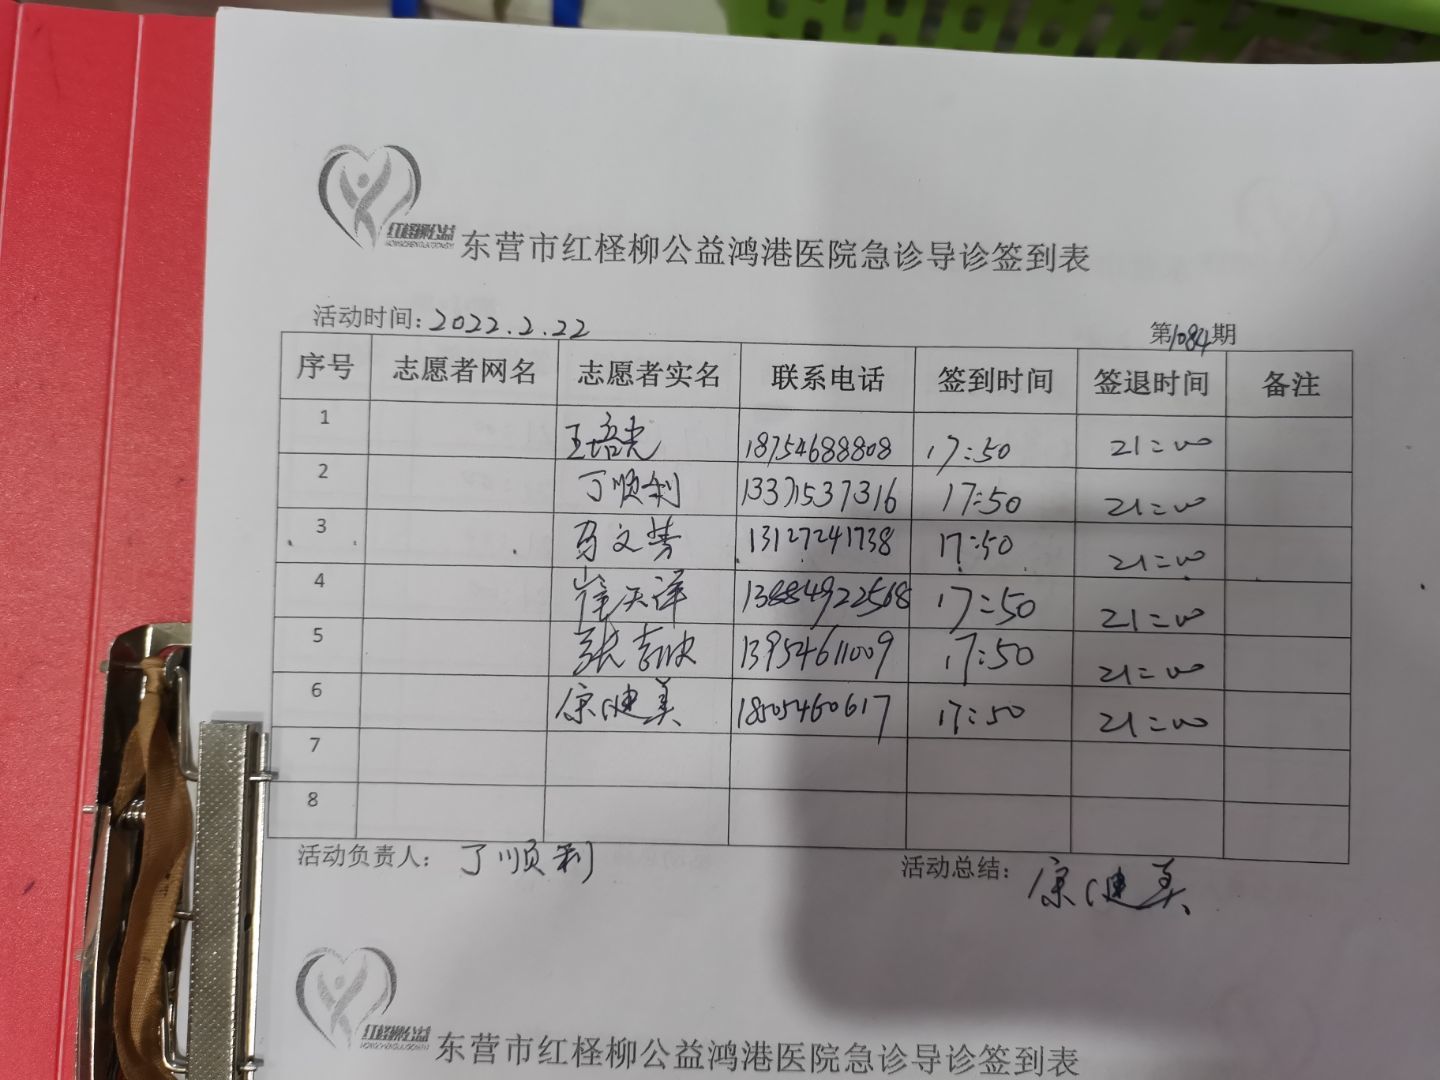 红柽柳公益
东营市红柽柳公益鸿港医院急诊导诊签到表
活动时间：2022.2.22
第1084期
序号 志愿者网名 志愿者实名 联系电话 签到时间 签退时间 备注
1 王培光 18754688808 17:50 21:00
2 丁顺利 13371537316 17:50 21:00
3 马文芳 13127241738 17:50 21:00
4 崔天洋 13884922568 17:50 21:00
5 张 13954611009 17:50 21:00
6 康健美 18505460617 17:50 21:00
7
8
活动负责人：丁顺利
活动总结：康健美
红柽柳公益
东营市红柽柳公益鸿港医院急诊导诊签到表